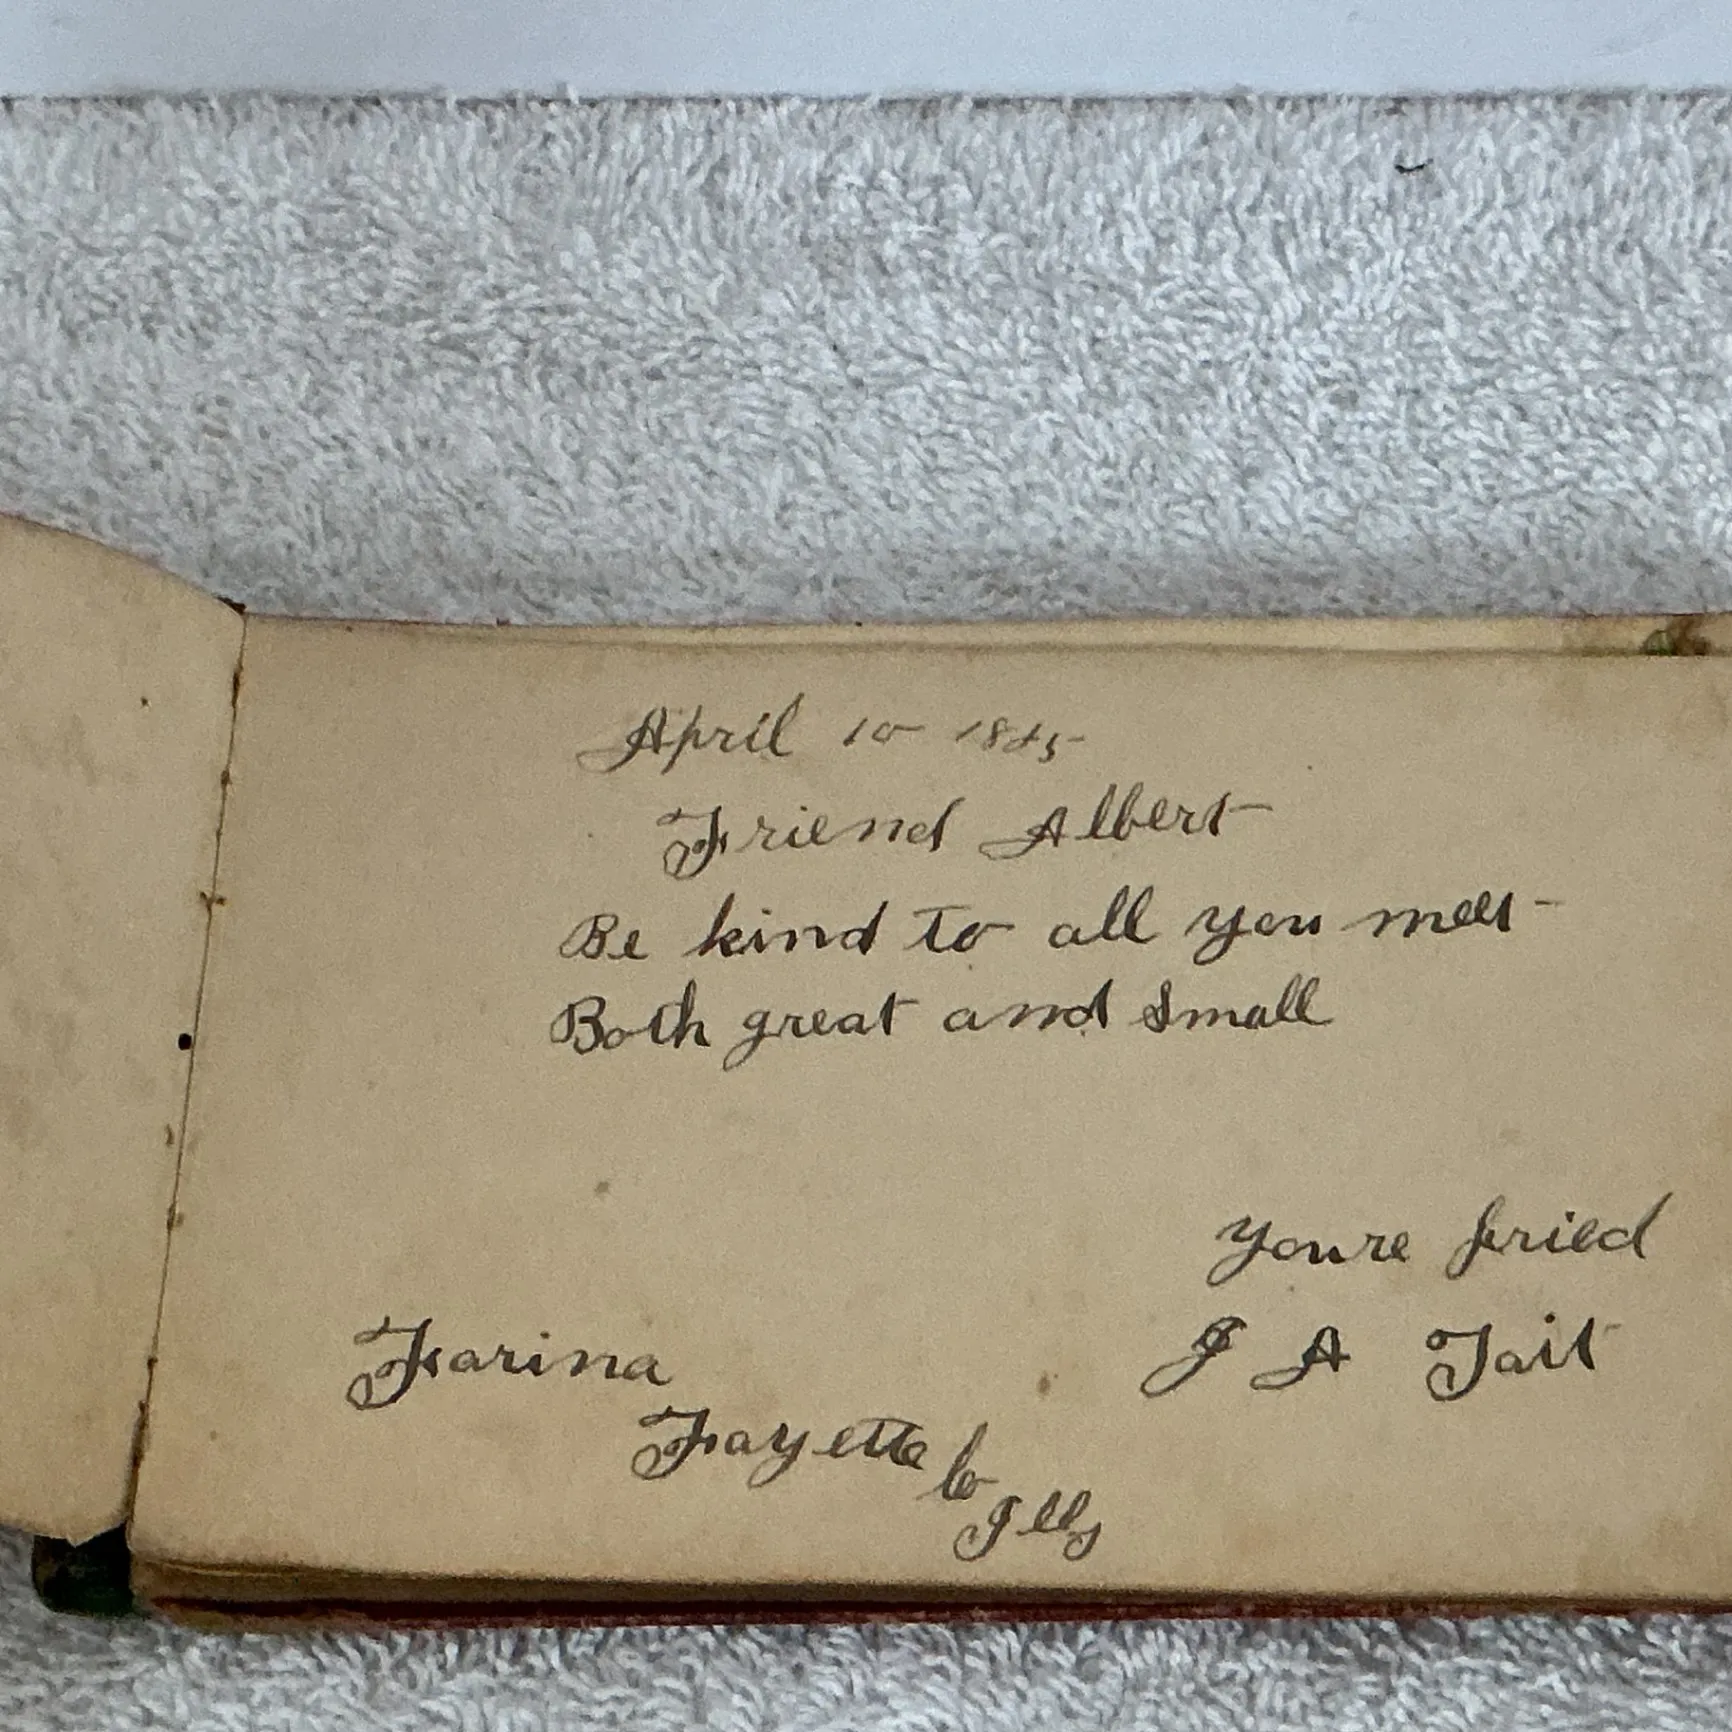 April 10 1885
Friend Albert
Be kind to all you meet
Both great and small
Youre fried
J A Tait
Farina
Fayette Co
Ills